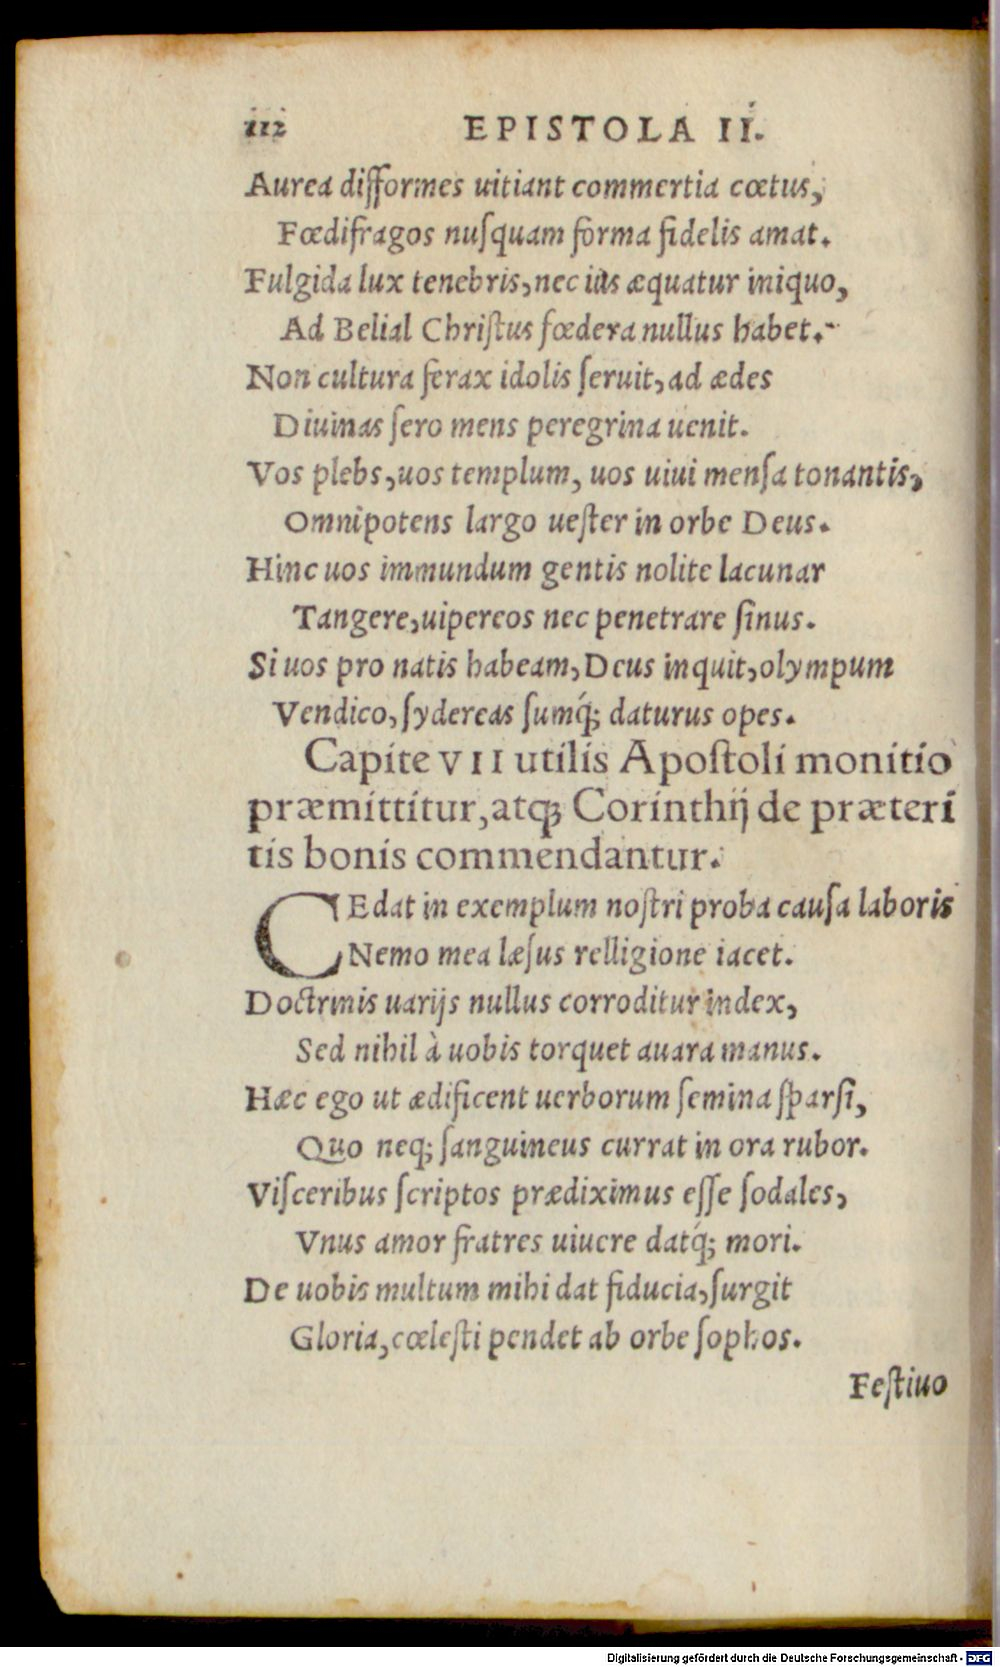 112 EPISTOLA II.
Aurea difformes uitiant commertia cœtus,
Fœdifragos nusquam forma fidelis amat.
Fulgida lux tenebris, nec ius æquatur iniquo,
Ad Belial Christus fœdera nullus habet.
Non cultura ferax idolis seruit, ad ædes
Diuinas sero mens peregrina uenit.
Vos plebs, uos templum, uos uiui mensa tonantis,
Omnipotens largo uester in orbe Deus.
Hinc uos immundum gentis nolite lacunar
Tangere, uipereos nec penetrare sinus.
Si uos pro natis habeam, Deus inquit, olympum
Vendico, sydereas sumq́; daturus opes.
Capite VII utilis Apostoli monitio
præmittitur, atq; Corinthij de præteri
tis bonis commendantur.
CEdat in exemplum nostri proba causa laboris
Nemo mea læsus relligione iacet.
Doctrinis uarijs nullus corroditur index,
Sed nihil à uobis torquet auara manus.
Hæc ego ut ædificent uerborum semina sparsi,
Quo neq; sanguineus currat in ora rubor.
Visceribus scriptos prædiximus esse sodales,
Vnus amor fratres uiuere datq́; mori.
De uobis multum mihi dat fiducia, surgit
Gloria, cœlesti pendet ab orbe sophos.
Festiuo
Digitalisierung gefördert durch die Deutsche Forschungsgemeinschaft - DFG